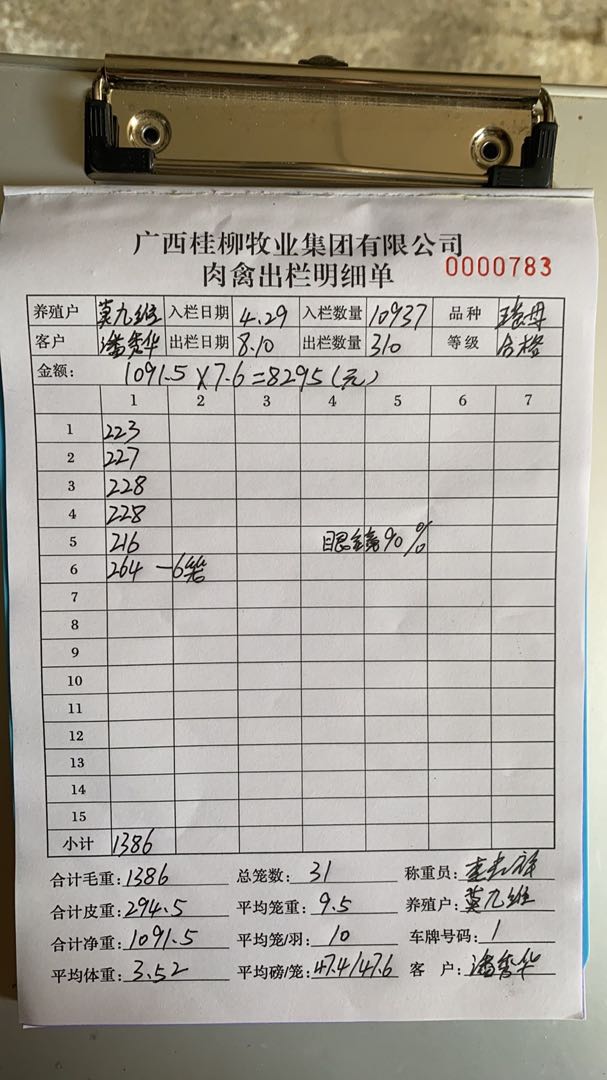 广西桂柳牧业集团有限公司
肉禽出栏明细单 0000783
养殖户 莫九班 入栏日期 4.29 入栏数量 10937 品种 瑶母
客户 潘秀华 出栏日期 8.10 出栏数量 310 等级 合格
金额: 1091.5 X 7.6 = 8295 (元)
1 2 3 4 5 6 7
1 223
2 227
3 228
4 228
5 216 眼镜90%
6 264 —6笼
7
8
9
10
11
12
13
14
15
小计 1386
合计毛重: 1386 总笼数: 31 称重员:
合计皮重: 294.5 平均笼重: 9.5 养殖户: 莫九班
合计净重: 1091.5 平均笼/羽: 10 车牌号码: 1
平均体重: 3.52 平均磅/笼: 47.4/47.6 客户: 潘秀华